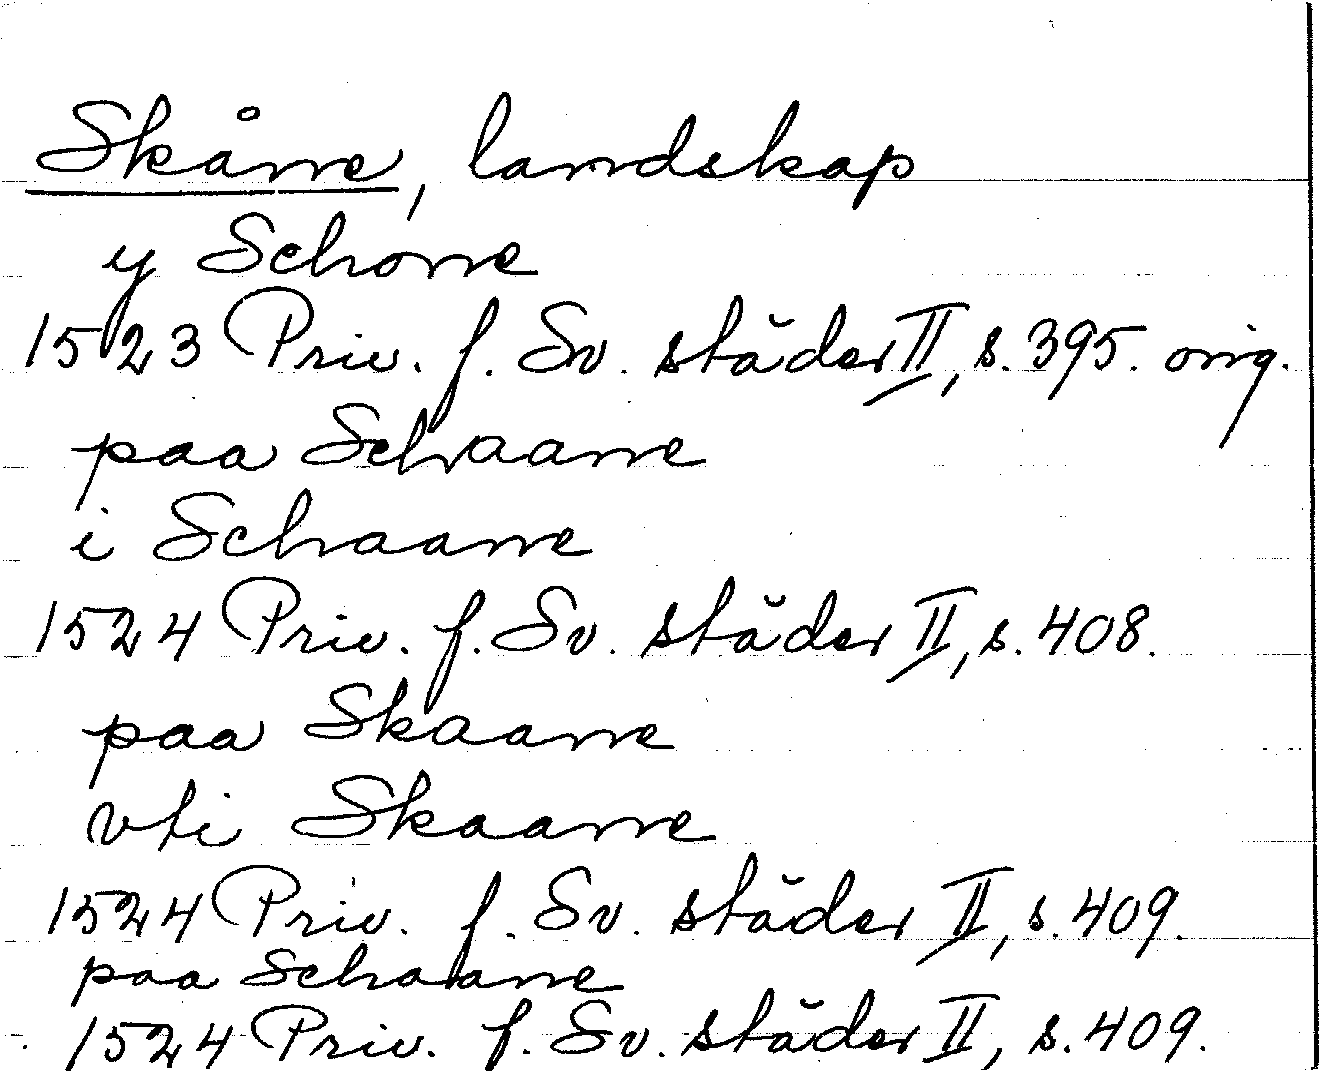 Skåne, landskap
y Schone
1523 Priv. f. Sv. städer II, s. 395. orig.
paa Schaane
i Schaane
1524 Priv. f. Sv. städer II, s. 408.
paa Skaane
vti Skaane
1524 Priv. f. Sv. städer II, s. 409.
paa Schaane
1524 Priv. f. Sv. städer II, s. 409.